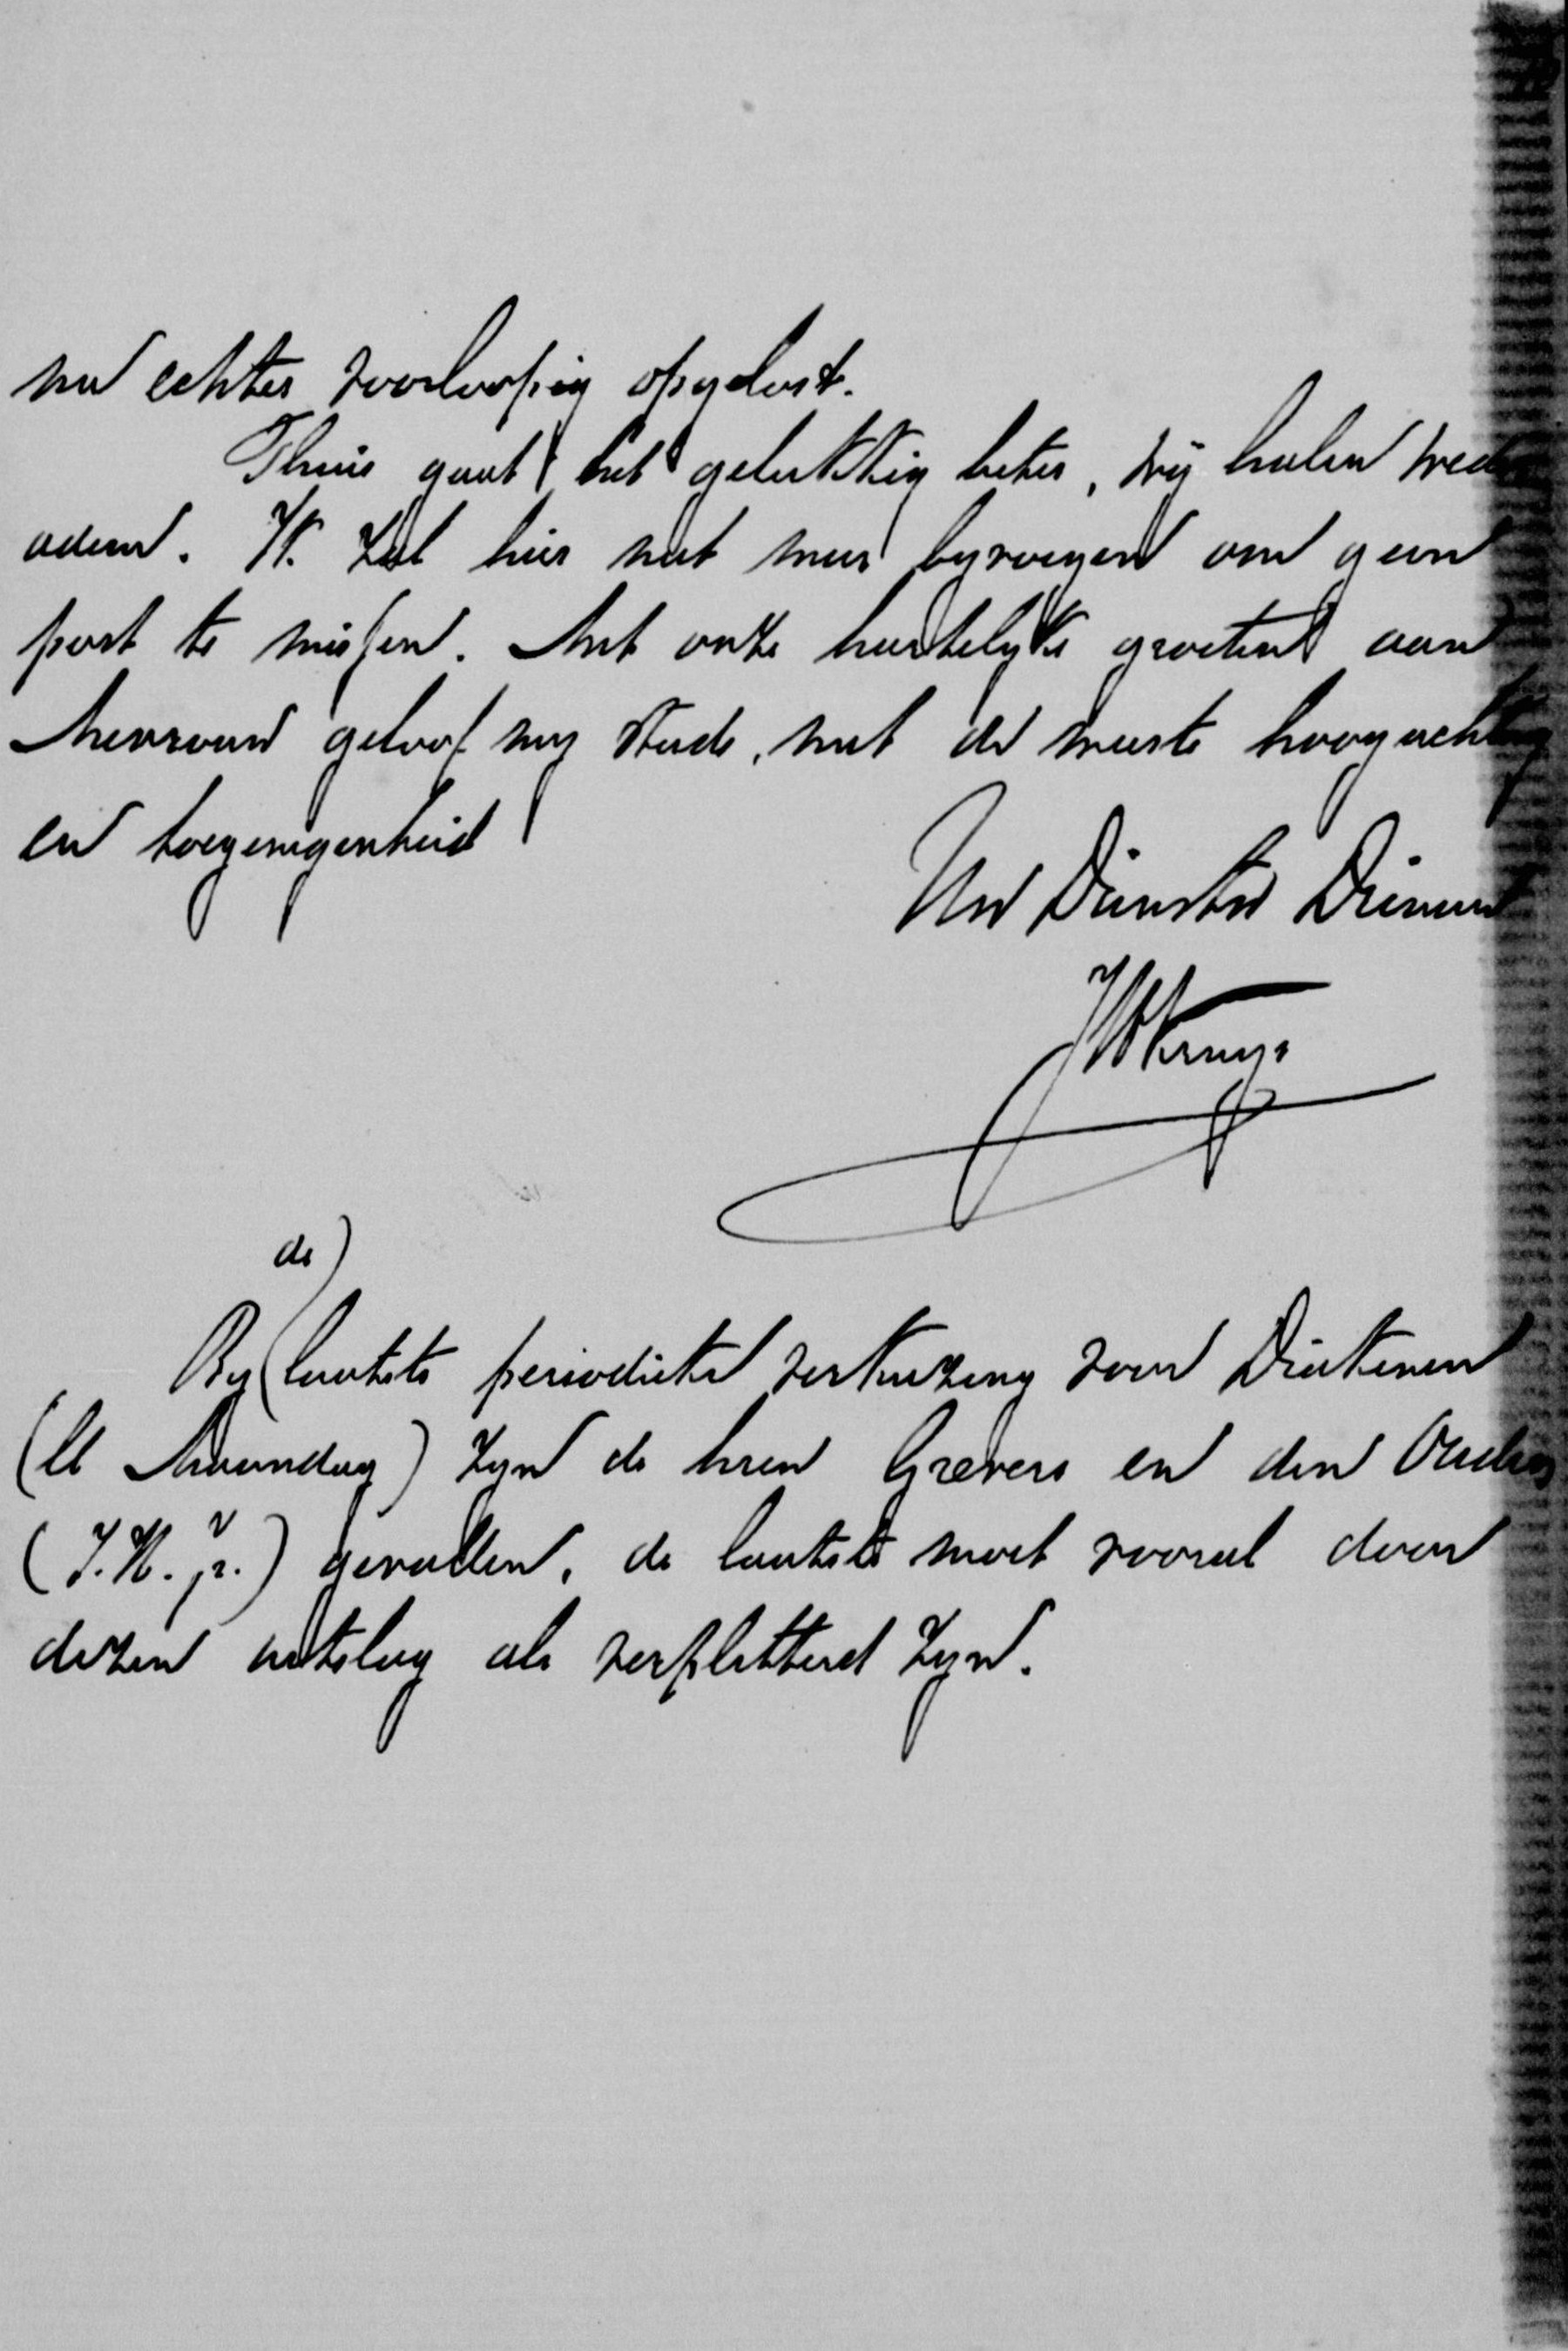 nu echter voorloopig opgelost.
Thuis gaat het gelukkig beter, wij halen weder
adem. Ik zal hier niet meer byvoegen om geen
post te missen. Met onze hartelyke groeten aan
Mevrouw geloof my steeds, met de meeste hoogachting
en toegenegenheid
Uw Dienstw Dienaar
de)
By (laatste periodieke verkiezing voor Diakenen
(ll Maandag) zyn de heren Grevers en den Ouden
(J.H. jr.) gevallen, de laatste moet vooral door
dezen uitslag als verpletterd zyn.